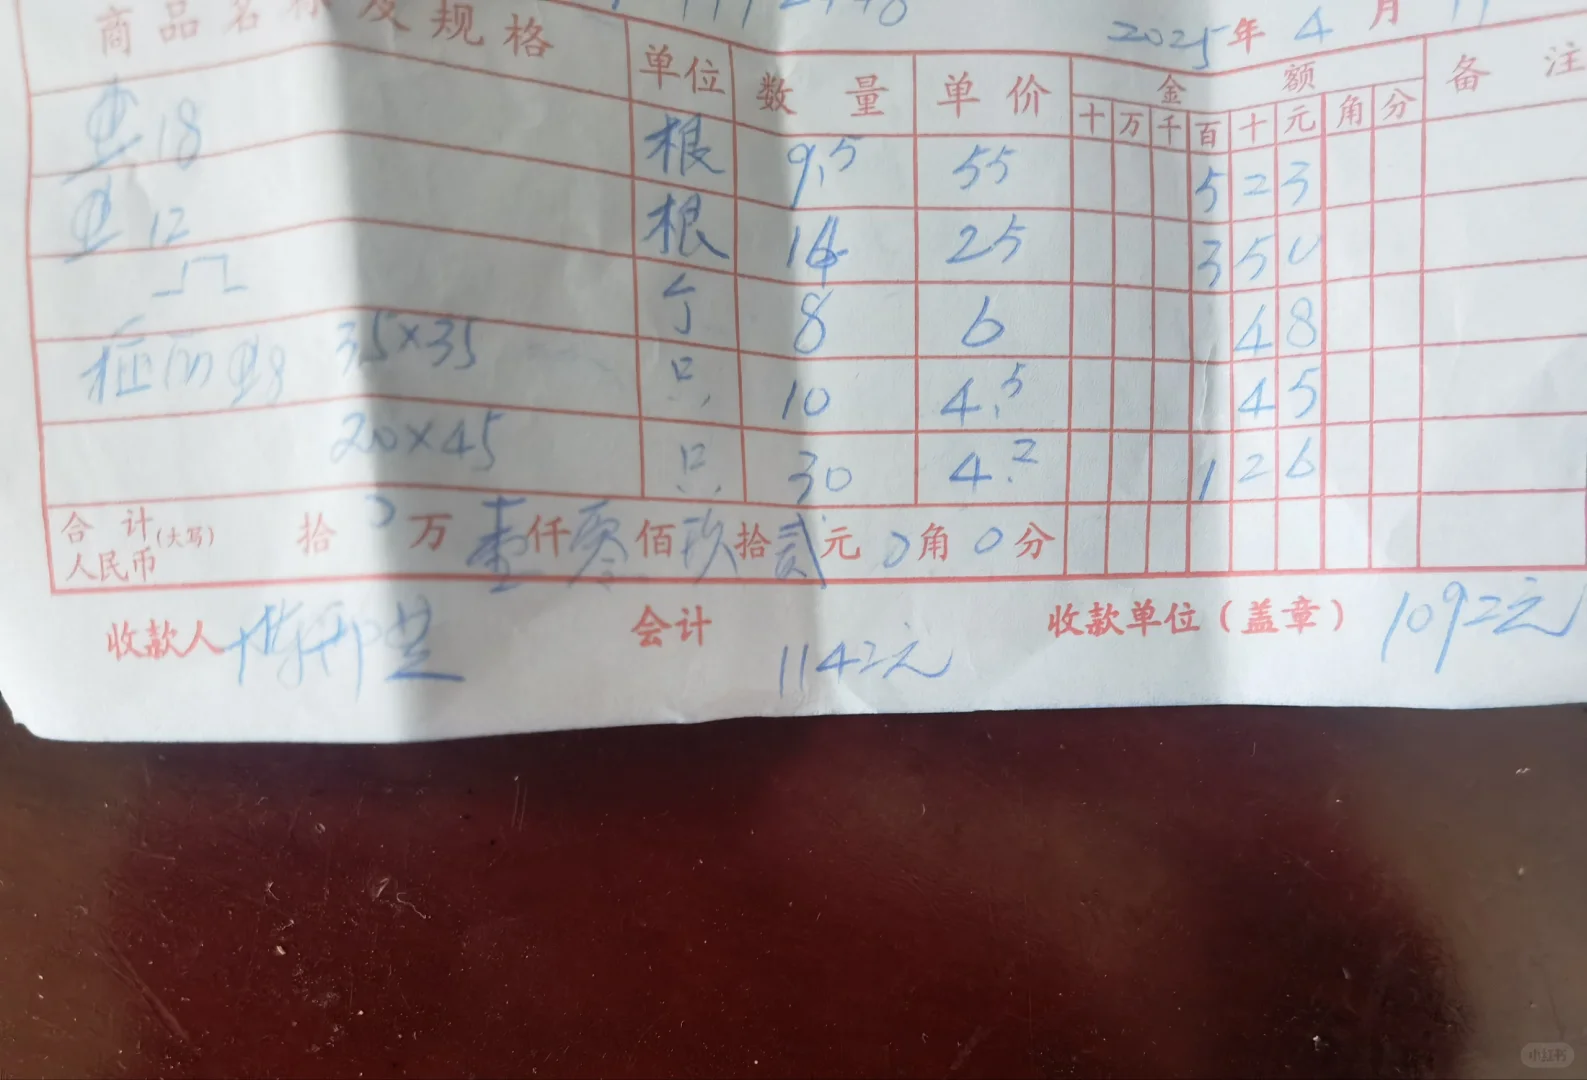 2025年4月
商品名称及规格 单位 数量 单价 金额 备注
十 万 千 百 十 元 角 分
18 根 9.5 55 5 2 3
12 根 14 25 3 5 0
个 8 6 4 8
35×35 只 10 4.5 4 5
20×45 只 30 4.2 1 2 6
合计人民币(大写) 拾 0 万 壹仟零佰玖拾贰元 0角 0分
收款人 会计 收款单位(盖章) 1092元
1142元
小红书